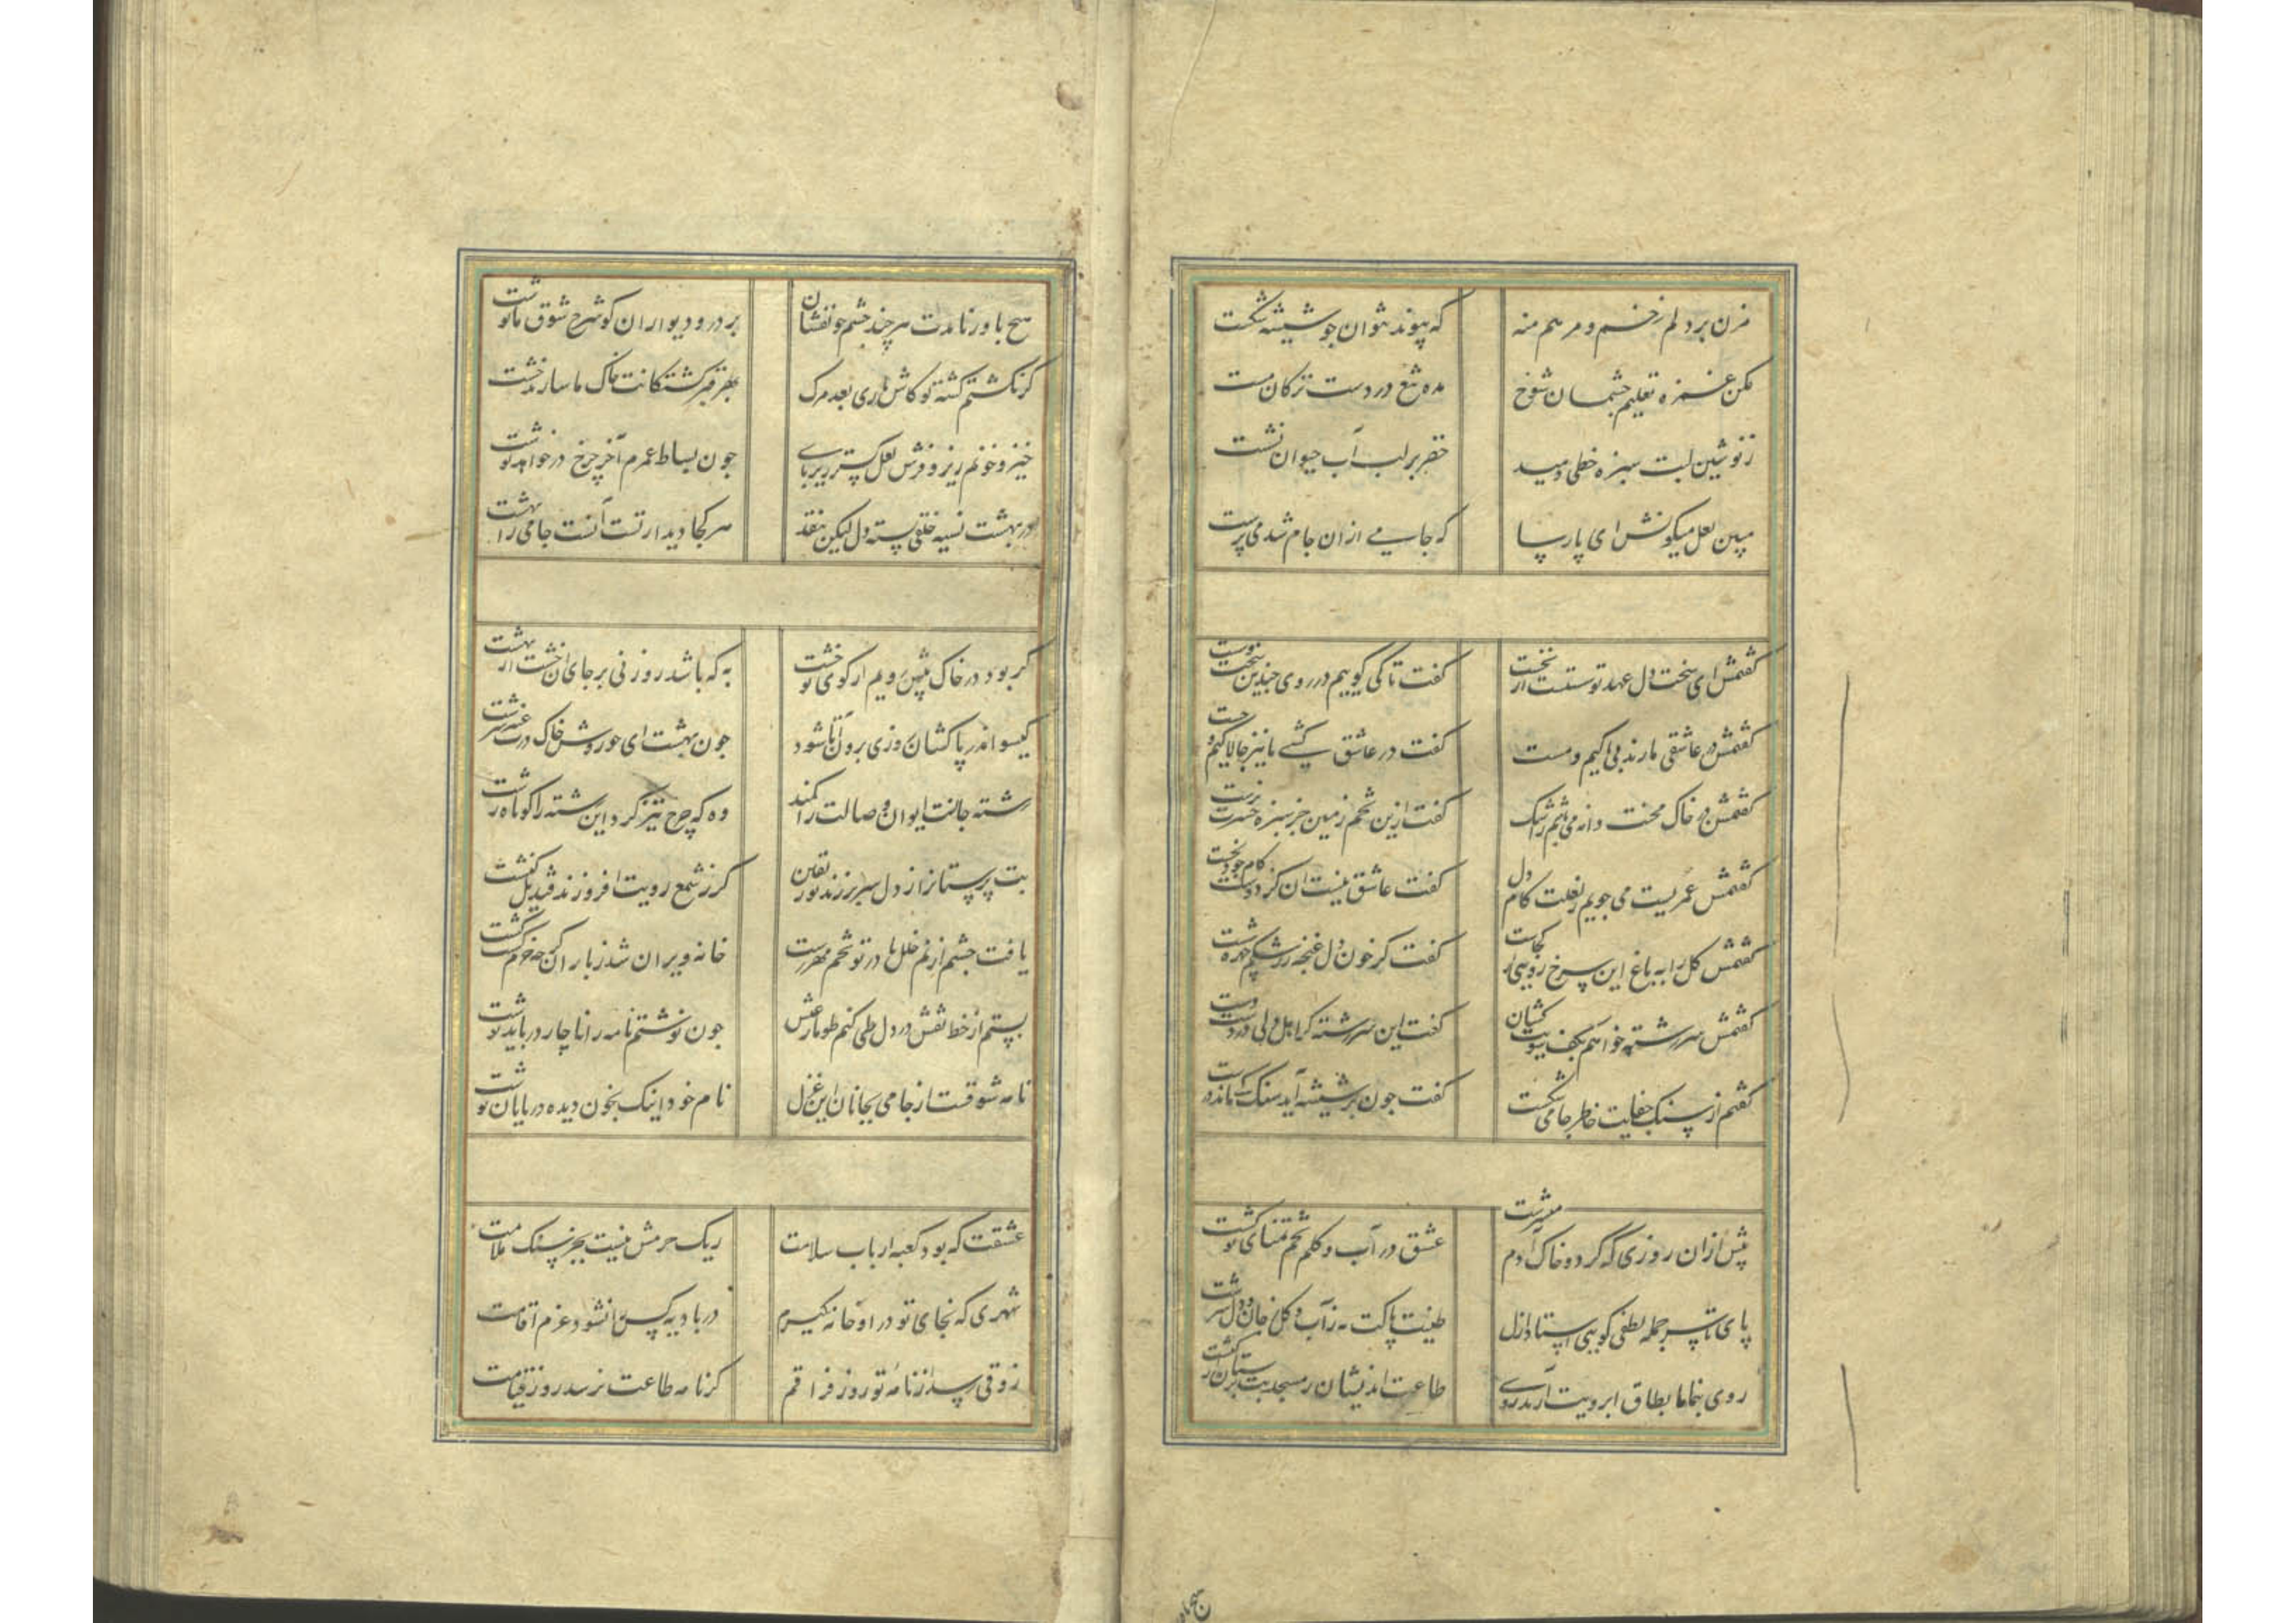 مزن بر دلم زخم و مرهم منه که پیوند نتوان چو شیشه شکست
مکن غمزه تعلیم چشمان شوخ مده تیغ در دست ترکان مست
ز نوشین لبت سبزه خطی دمید خضر بر لب آب حیوان نشست
مبین لعل میکونش ای پارسا که جامی از آن جام شد می پرست
کفتمش ای سخت دل عهد تو سستست از نخست کفت تا کی کوییم در روی چندین سخت و سست
کفتمش در عاشقی ما رند بی باکیم و مست کفت در عاشق کشی ما نیز چالاکیم و چست
کفتمش در خاک محنت دانه می پاشم ز اشک کفت ازین تخم زمین جز سبزه حسرت نرست
کفتمش عمریست می جویم ز لعلت کام دل کفت عاشق نیست آن کز دوست کام خود بجست
کفتمش کل را به باغ این سرخ رویی از کجاست کفت کز خون دل غنچه ز رشکم چهره شست
کفتمش سررشته خواهم بکف کفت این سررشته کرا
کفتم از سنک جفایت خاطر جامی شکست کفت چون بر شیشه آید سنک کی ماند درست
پیش از آن روزی که کردون خاک آدم میسرشت عشق در آب و کلم تخم تمنای تو کشت
پای تا سر جمله لطفی کوییا استاد ازل طینت پاکت نه ز آب و کل ز جان و دل سرشت
روی بنما تا بطاق ابرویت آرند روی طاعت اندیشان ز مسجد بت پرستان از کنشت
هیچ باور نامدت هر چند چشم خونفشان بر در و دیوار آن کو شرح شوق ما نوشت
کر نکشتم کشته تو کاش باری بعد مرک بهر قبر کشتکانت خاک ما سازند خشت
خیز و خونم ریز و فرش لعل کستر زیر پای چون بساط عمرم آخر چرخ در خواهد نوشت
در بهشت نسیه خلقی بسته دل لیکن بنقد هر کجا دیدار تست آنست جامی را بهشت
کر بود در خاک پیش رویم از کوی تو خشت به که باشد روزنی بر جای آن خشت از بهشت
کیسو اندر پا کشان روزی برون آ تا شود چون بهشت ای حوروش خاک درت عنبر سرشت
رشته جانت ایوان وصالت را کمند وه که چرخ تیزکرد این رشته را کوتاه رشت
بت پرستان را ز دل سر برزند نور یقین کر ز شمع رویت افروزند قندیل کنشت
یافت چشم از نم خلل تا در تو تخم مهر رست خانه ویران شد ز باران کر چه خرم کشت کشت
بستم از خط نقش در دل طی کنم طومار عیش چون نوشتم نامه را ناچار در باید نوشت
نامه شوقست از جامی بجانان این غزل نام خود اینک بخون دیده در پایان نوشت
عشقت که بود کعبه ارباب سلامت ریک حرمش نیست بجز سنک ملامت
شهری که نجای تو در او خانه نکیرم در بادیه کس را نشود عزم اقامت
ذوقی رسد از نامه تو روز فراقم کز نامه طاعت نرسد روز قیامت